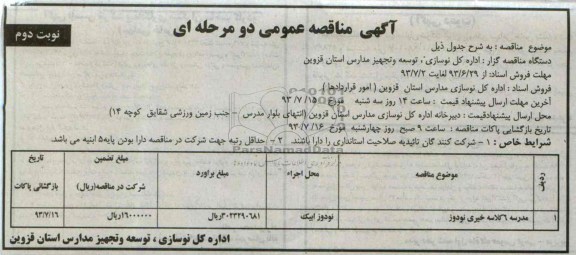 آگهی مناقصه عمومی دو مرحله ای
نوبت دوم
موضوع مناقصه : به شرح جدول ذیل
دستگاه مناقصه گزار : اداره کل نوسازی ، توسعه وتجهیز مدارس استان قزوین
مهلت فروش اسناد: از ۹۳/۶/۲۹ لغایت ۹۳/۷/۲
فروش اسناد : اداره کل نوسازی مدارس استان قزوین ( امور قراردادها )
آخرین مهلت ارسال پیشنهاد قیمت : ساعت ۱۴ روز سه شنبه مورخ ۹۳/۷/۱۵
محل ارسال پیشنهادقیمت : دبیرخانه اداره کل نوسازی مدارس استان قزوین (انتهای بلوار مدرس - جنب زمین ورزشی شقایق کوچه ۱۴)
تاریخ بازگشایی پاکات مناقصه : ساعت ۹ صبح روز چهارشنبه مورخ ۹۳/۷/۱۶
شرایط خاص : ۱ – شرکت کنند گان تائیدیه صلاحیت استانداری را دارا باشند. ۲ – حداقل رتبه جهت شرکت در مناقصه دارا بودن پایه۵ ابنیه می باشد.
ردیف موضوع مناقصه محل اجراء مبلغ براورد مبلغ تضمین شرکت در مناقصه(ریال) تاریخ بازگشائی پاکات
۱ مدرسه ۶کلاسه خیری نودوز نودوز ابیک ۳۰۲۳۲۹۰۶۸۱ریال ۱۶۰۰۰۰۰۰ریال ۹۳/۷/۱۶
اداره کل نوسازی ، توسعه وتجهیز مدارس استان قزوین